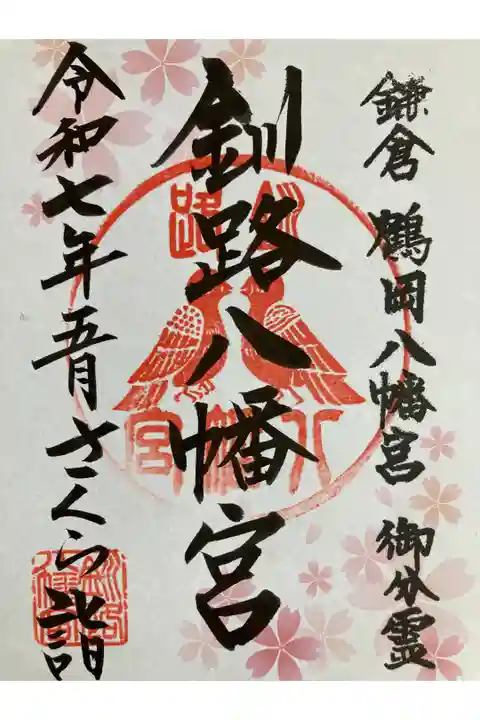 鎌倉 鶴岡八幡宮 御分霊
釧路八幡宮
釧路
八幡宮
令和七年五月 さくら詣